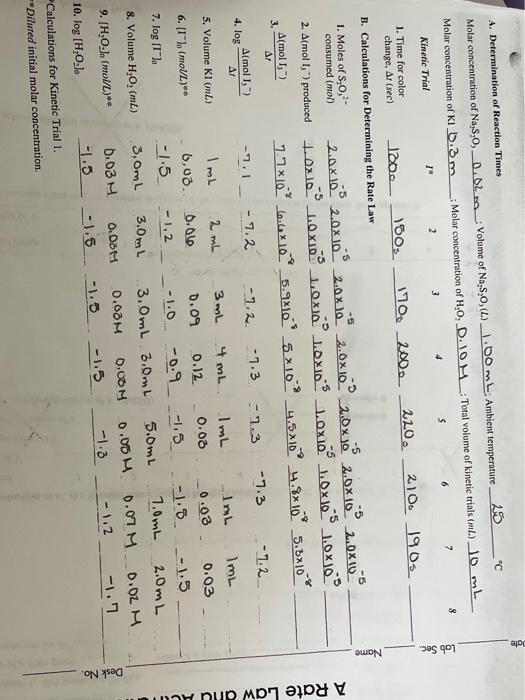 A Rate Law and
Date
Lab Sec.
Name
Desk No.
A. Determination of Reaction Times
Molar concentration of Na₂S₂O₃ 0.02 m ; Volume of Na₂S₂O₃ (L) 1.00 mL; Ambient temperature 25 °C
Molar concentration of KI 0.3 m ; Molar concentration of H₂O₂ 0.10 M ; Total volume of kinetic trials (mL) 10 mL
Kinetic Trial 1* 2 3 4 5 6 7 8
1. Time for color change, Δt (sec) 130s 150s 170s 200s 220s 210s 190s
B. Calculations for Determining the Rate Law
1. Moles of S₂O₃²⁻ consumed (mol) 2.0×10⁻⁵ 2.0×10⁻⁵ 2.0×10⁻⁵ 2.0×10⁻⁵ 2.0×10⁻⁵ 2.0×10⁻⁵ 2.0×10⁻⁵
2. Δ(mol I₃⁻) produced 1.0×10⁻⁵ 1.0×10⁻⁵ 1.0×10⁻⁵ 1.0×10⁻⁵ 1.0×10⁻⁵ 1.0×10⁻⁵ 1.0×10⁻⁵
3. Δ(mol I₃⁻)/Δt 7.7×10⁻⁸ 6.6×10⁻⁸ 5.9×10⁻⁸ 5×10⁻⁸ 4.5×10⁻⁸ 4.8×10⁻⁸ 5.3×10⁻⁸
4. log Δ(mol I₃⁻)/Δt -7.1 -7.2 -7.2 -7.3 -7.3 -7.3 -7.2
5. Volume KI (mL) 1 mL 2 mL 3 mL 4 mL 1mL 1mL 1mL
6. [I⁻]₀ (mol/L)** 0.03 0.06 0.09 0.12 0.03 0.03 0.03
7. log [I⁻]₀ -1.5 -1.2 -1.0 -0.9 -1.5 -1.5 -1.5
8. Volume H₂O₂ (mL) 3.0mL 3.0mL 3.0mL 3.0mL 5.0mL 7.0mL 2.0mL
9. [H₂O₂]₀ (mol/L)** 0.03M 0.03M 0.03M 0.03M 0.05M 0.07M 0.02M
10. log [H₂O₂]₀ -1.5 -1.5 -1.5 -1.5 -1.3 -1.2 -1.7
*Calculations for Kinetic Trial 1.
**Diluted initial molar concentration.